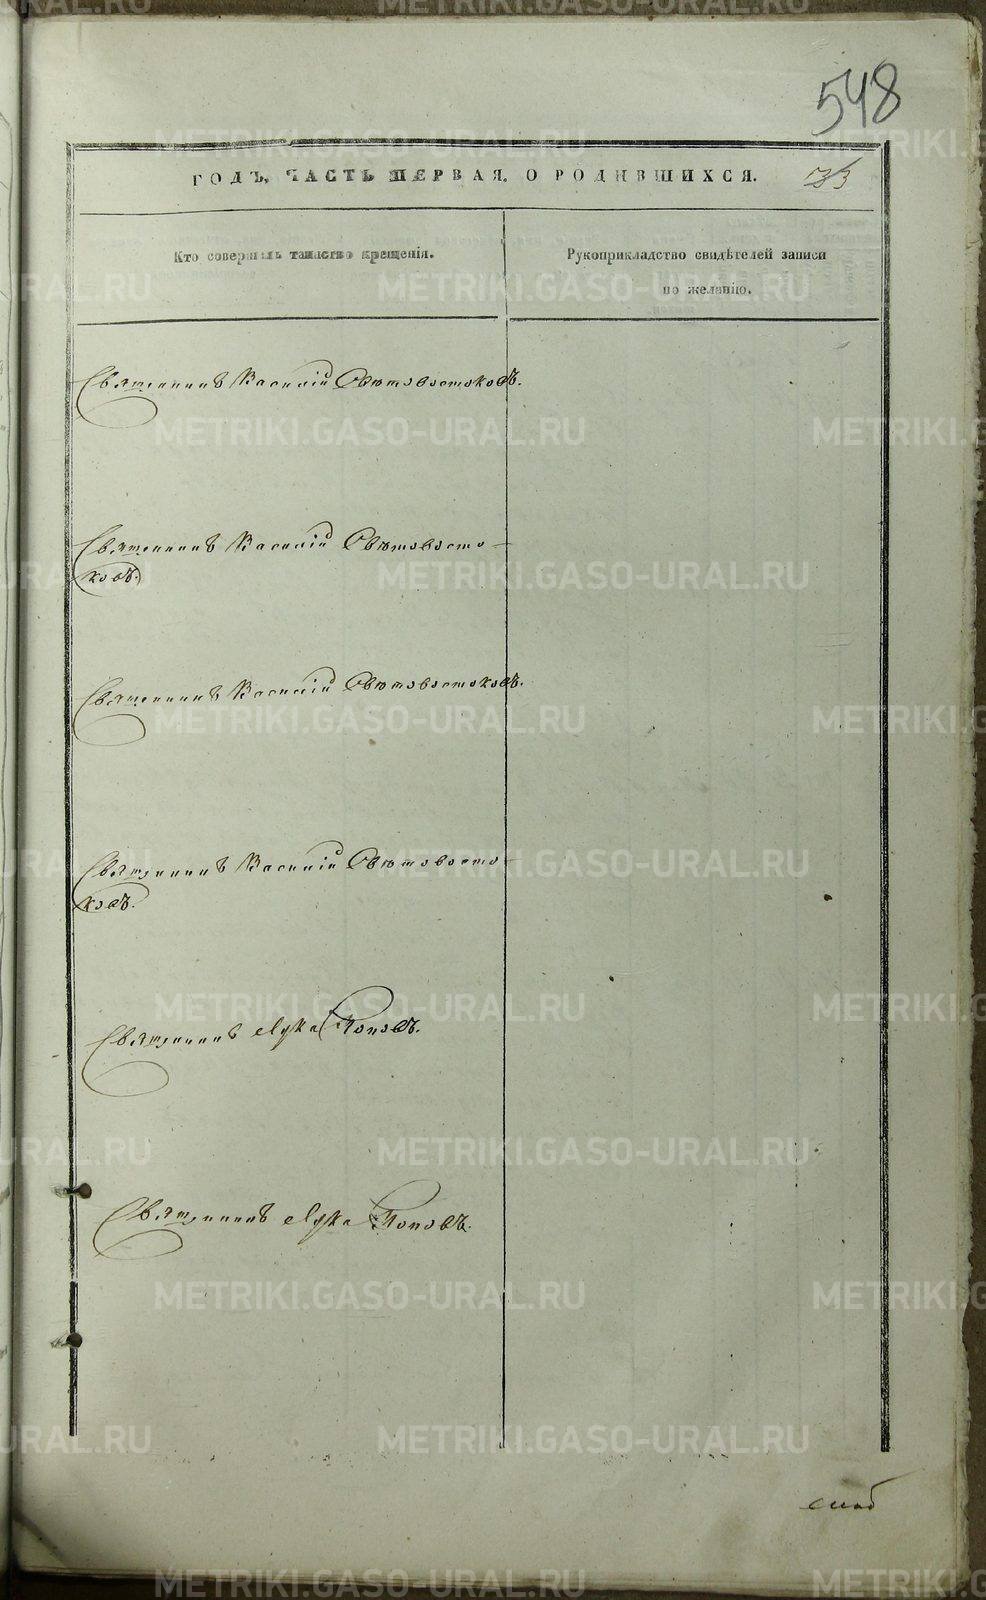 548
ГОДЪ, ЧАСТЬ ПЕРВАЯ. О РОДИВШИХСЯ.
Кто совершалъ таинство крещенія.
Рукоприкладство свидѣтелей записи
по желанію.
Священникъ Василій Свѣтовостоковъ.
Священникъ Василій Свѣтовосто-
ковъ.
Священникъ Василій Свѣтовостоковъ.
Священникъ Василій Свѣтовосто-
ковъ.
Священникъ Лука Поповъ.
Священникъ Лука Поповъ.
METRIKI.GASO-URAL.RU